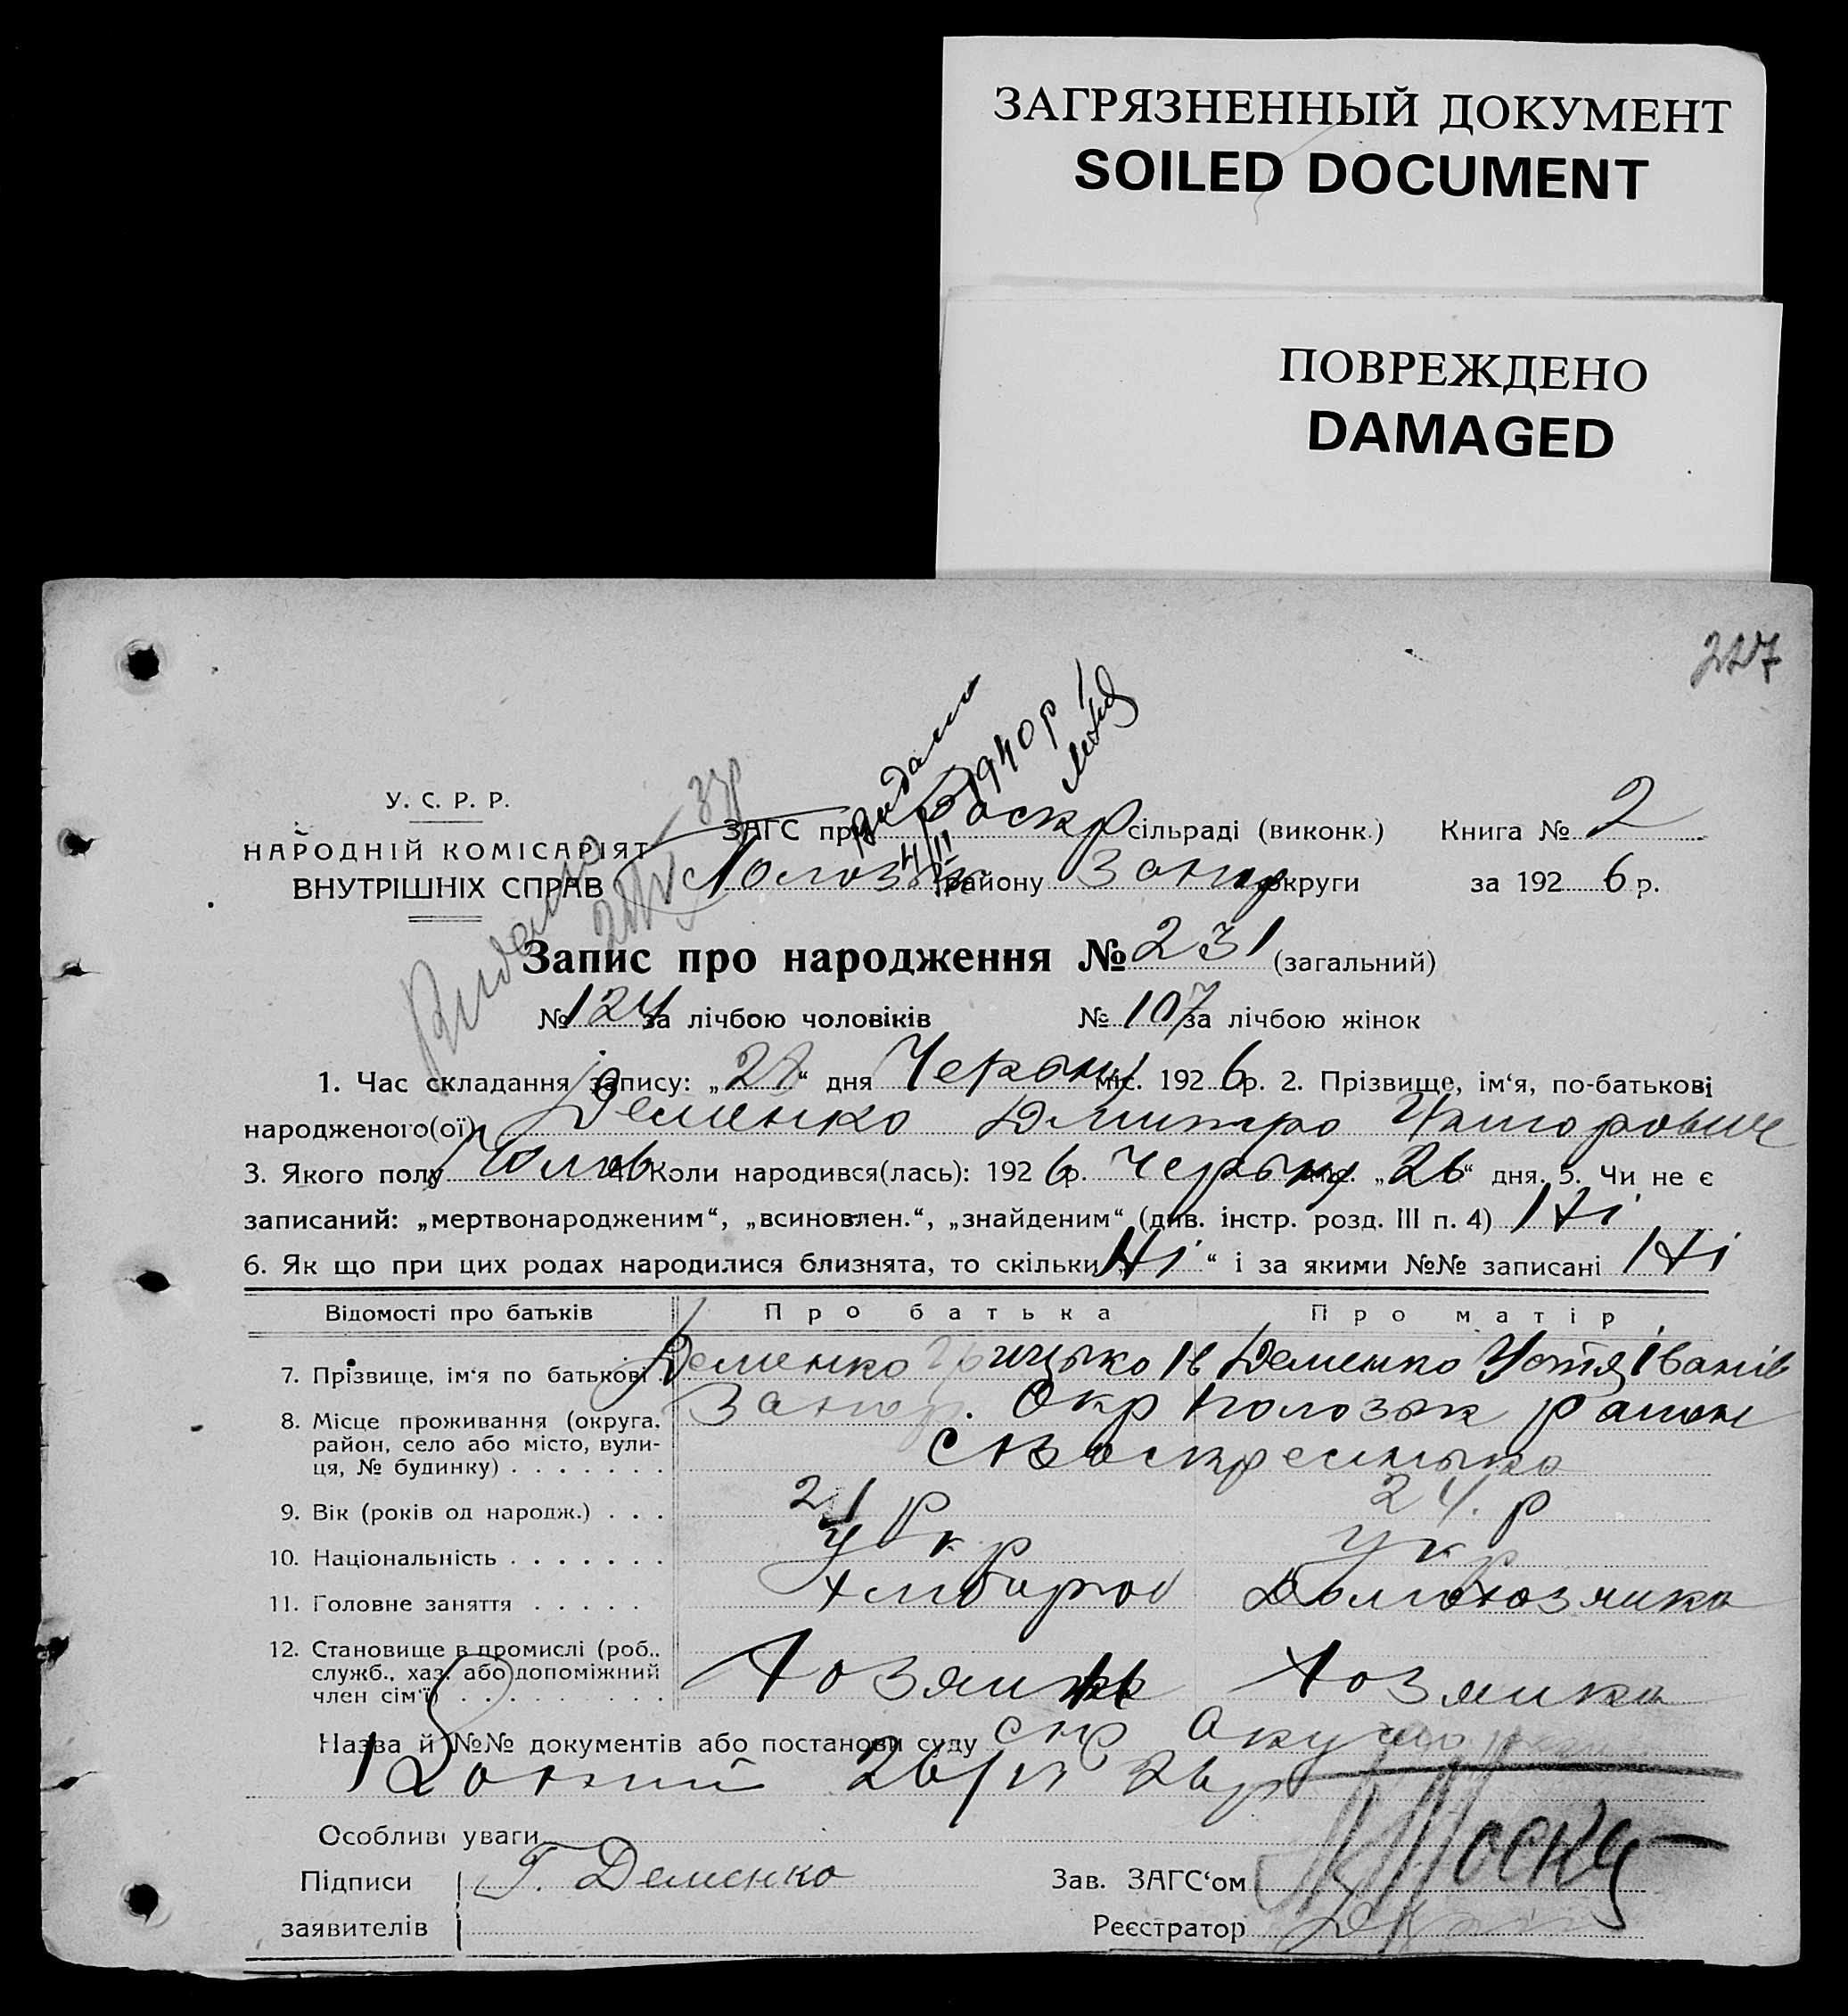 ЗАГРЯЗНЕННЫЙ ДОКУМЕНТ
SOILED DOCUMENT
ПОВРЕЖДЕНО
DAMAGED
227
видано
1940 р
У. С. Р. Р.
НАРОДНІЙ КОМІСАРІЯТ
ВНУТРІШНІХ СПРАВ
Видано
ЗАГС при Воскр сільраді (виконк.) Книга № 2
Пологзьк району Запор округи за 192 6 р.
Запис про народження № 231 (загальний)
№ 124 за лічбою чоловіків № 107 за лічбою жінок
1. Час складання запису: „28“ дня Червня міс. 192 6 р. 2. Прізвище, ім‘я, по-батькові
народженого(ої) Деменко Дмитро Григорович
3. Якого полу Чолов 4. Коли народився(лась): 192 6 р. Червня міс. „26“ дня. 5. Чи не є
записаний: „мертвонародженим“, „всиновлен.“, „знайденим“ (див. інстр. розд. III п. 4) Ні
6. Як що при цих родах народилися близнята, то скільки „Ні“ і за якими №№ записані Ні
Відомості про батьків Про батька Про матір
7. Прізвище, ім‘я по батькові Деменко Грицько Ів Деменко Устя Іванів
8. Місце проживання (округа, район, село або місто, вулиця, № будинку) Запор. Окр Полозьк район
с Воскресенька
9. Вік (років од народж.) 21 р 24. р
10. Національність Укр Укр
11. Головне заняття Хлібороб Домохозяика
12. Становище в промислі (роб., служб., хаз. або допоміжний член сім‘ї) Хозяин Хозяика
Назва й №№ документів або постанови суду
26/VI 26 р
Особливі уваги
Підписи заявителів Г. Деменко
Зав. ЗАГС‘ом
Реєстратор